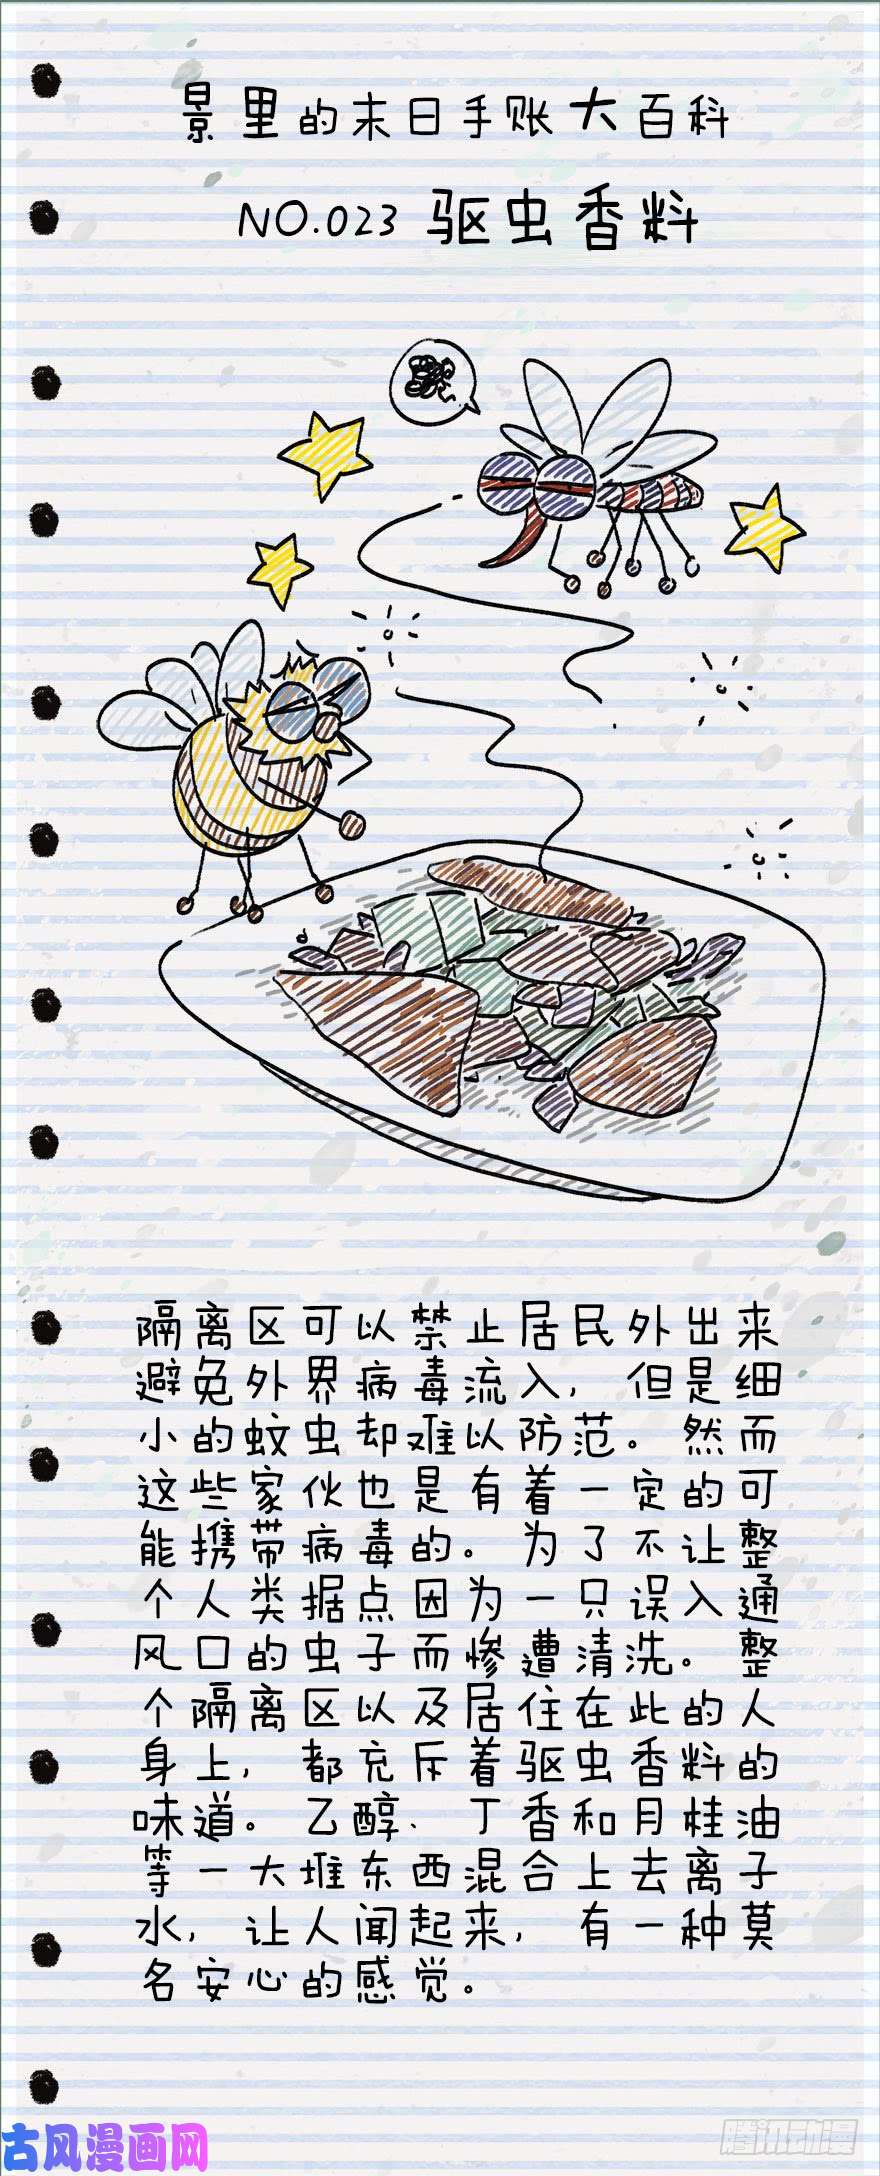 景里的末日手账大百科
NO.023 驱虫香料
隔离区可以禁止居民外出来
避免外界病毒流入，但是细
小的蚊虫却难以防范。然而
这些家伙也是有着一定的可
能携带病毒的。为了不让整
个人类据点因为一只误入通
风口的虫子而惨遭清洗。整
个隔离区以及居住在此的人
身上，都充斥着驱虫香料的
味道。乙醇、丁香和月桂油
等一大堆东西混合上去离子
水，让人闻起来，有一种莫
名安心的感觉。
古风漫画网
腾讯动漫